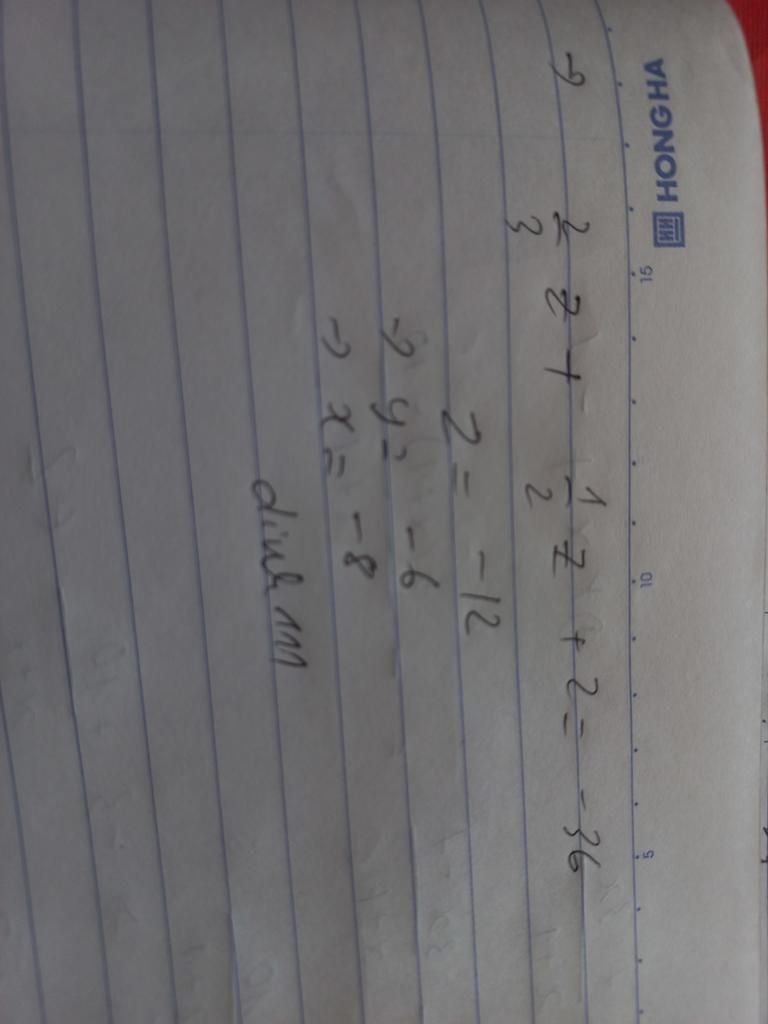 HONG HA
15 10 5
→ 2/3 z + 1/2 z + z = -36
z = -12
→ y = -6
→ x = -8